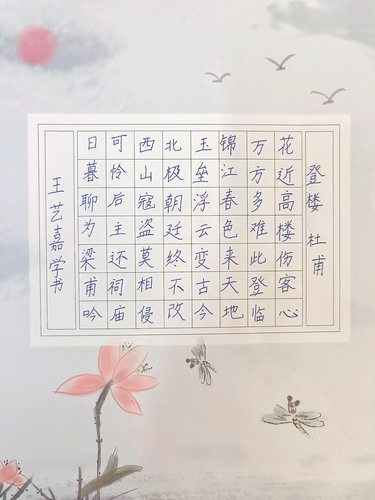 登楼 杜甫
花近高楼伤客心
万方多难此登临
锦江春色来天地
玉垒浮云变古今
北极朝廷终不改
西山寇盗莫相侵
可怜后主还祠庙
日暮聊为梁甫吟
王艺嘉学书